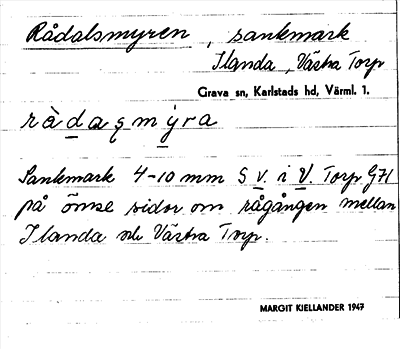 Rådalsmyren, sankmark
Ilanda, Västra Torp
Grava sn, Karlstads hd, Värml. l.
ràdaqmýra
Sankmark 4-10 mm S v. i V. Torp G71
på ömse sidor om rågången mellan
Ilanda och Västra Torp.
MARGIT KJELLANDER 1947